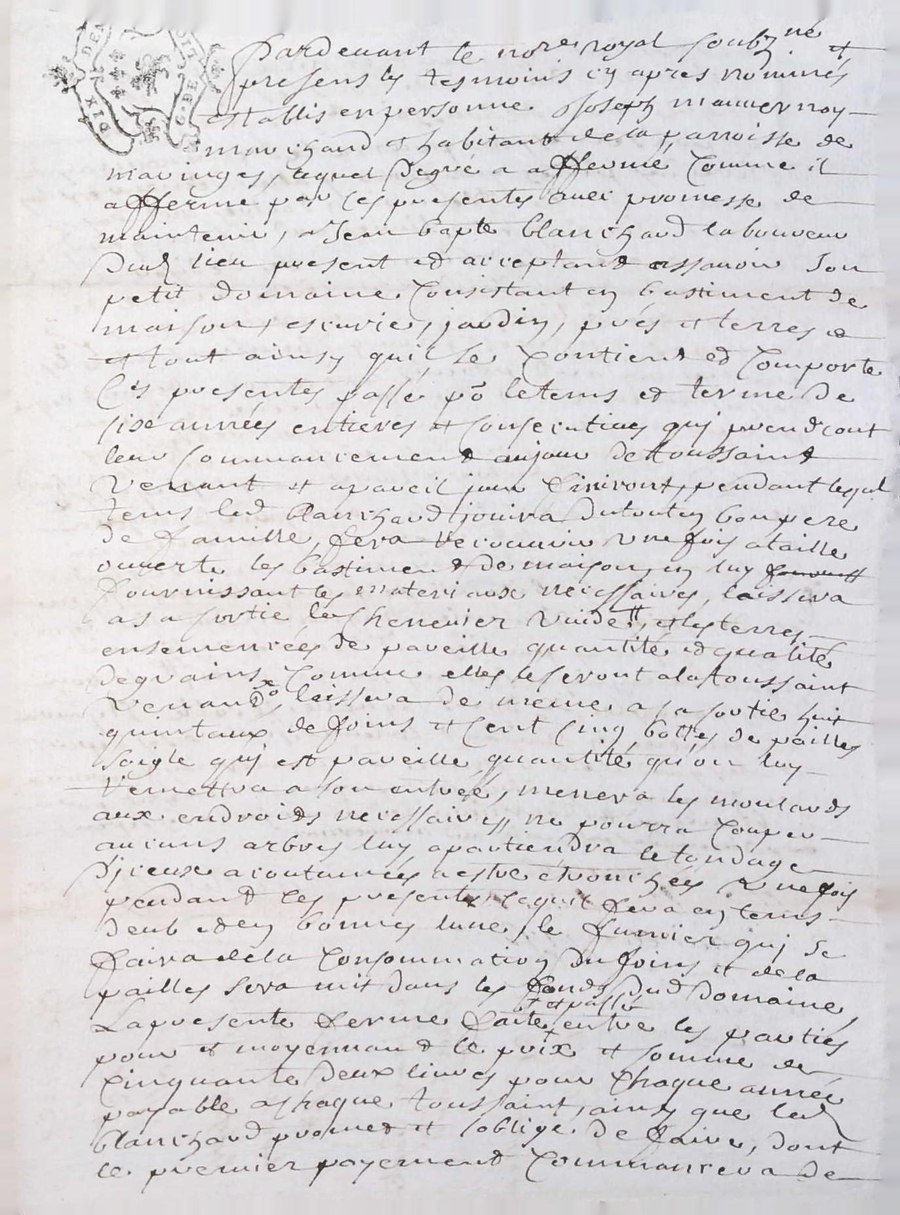 Pardevant le nore royal soubz né et
presens les tesmoins cy apres nommés
establis en personne Joseph mauvernoy
marchand et habitant de la parroisse de
maringes, lequel degré a afferme Comme il
afferme par ces presentes avec promesse de
maintenir, a Jean bapte blanchard laboureur
dud lieu present et acceptant assavoir son
petit domaine Consistant en bastiment de
maison, escurie, jardin, prés et terres
et tout ainsy quil se Contient et Comporte
Ces presentes passé po le tems et terme de
sise années entieres et Consecutives quy prendront
leur Commancement aujour de toussaint
venant et a pareil jour finiront, pendant lequel
tems led blanchard jouira du tout en bon pere
de famille, fera recouvrir une fois a taille
ouverte les bastiment de maison, en luy
fournissant les materiaux nécéssaires, laissera
a sa sortie le chenevier vuide, et les terres
ensemencées de pareille quantité et qualité
de grains Comme elles le seront a la toussaint
venant, laissera de meme a sa sortie huit
quintaux de foins et Cent Cinq bottes de pailles
soigle quy est pareille quantité qu'on luy
remettra a son entrée, menera les moulards
aux endroids nécéssaires, ne pourra Couper
aucuns arbres luy apartiendra le tondage
d'iceux acoutumés a estre ébranchés une fois
pendant les presentes, ce quil fera en tems
deub et en bonnes lune, le fumier quy se
faira de la Consommation du foins et de la
pailles sera mit dans les fonds dud domaine,
La presente ferme faite et passée entre les parties
pour et moyennant le prix et somme de
Cinquante deux livres pour Chaque année
payable a chaque toussaint, ainsy que led
blanchard promet et soblige de faire, dont
le premier payement Commancera de